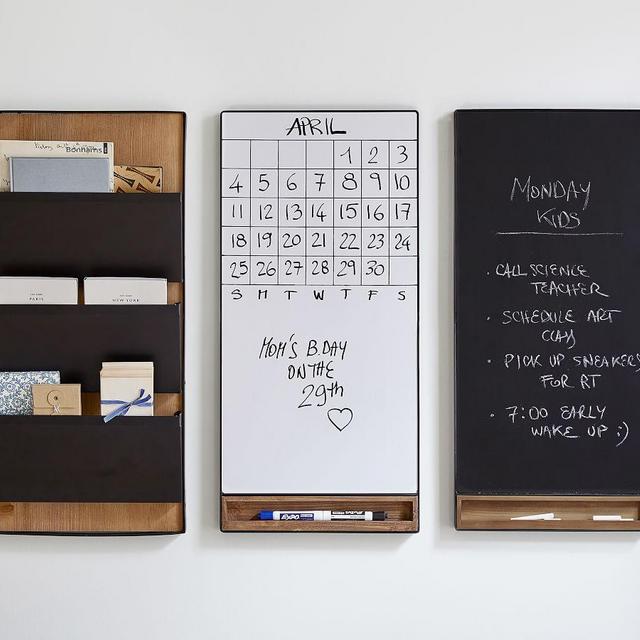 Bonhams
PARIS
NEW YORK
APRIL
1 2 3
4 5 6 7 8 9 10
11 12 13 14 15 16 17
18 19 20 21 22 23 24
25 26 27 28 29 30
S M T W T F S
MOM'S B.DAY
ON THE
29th
EXPO
MONDAY
KIDS
• CALL SCIENCE
TEACHER
• SCHEDULE ART
CLAY
• PICK UP SNEAKERS
FOR RT
• 7:00 EARLY
WAKE UP :)